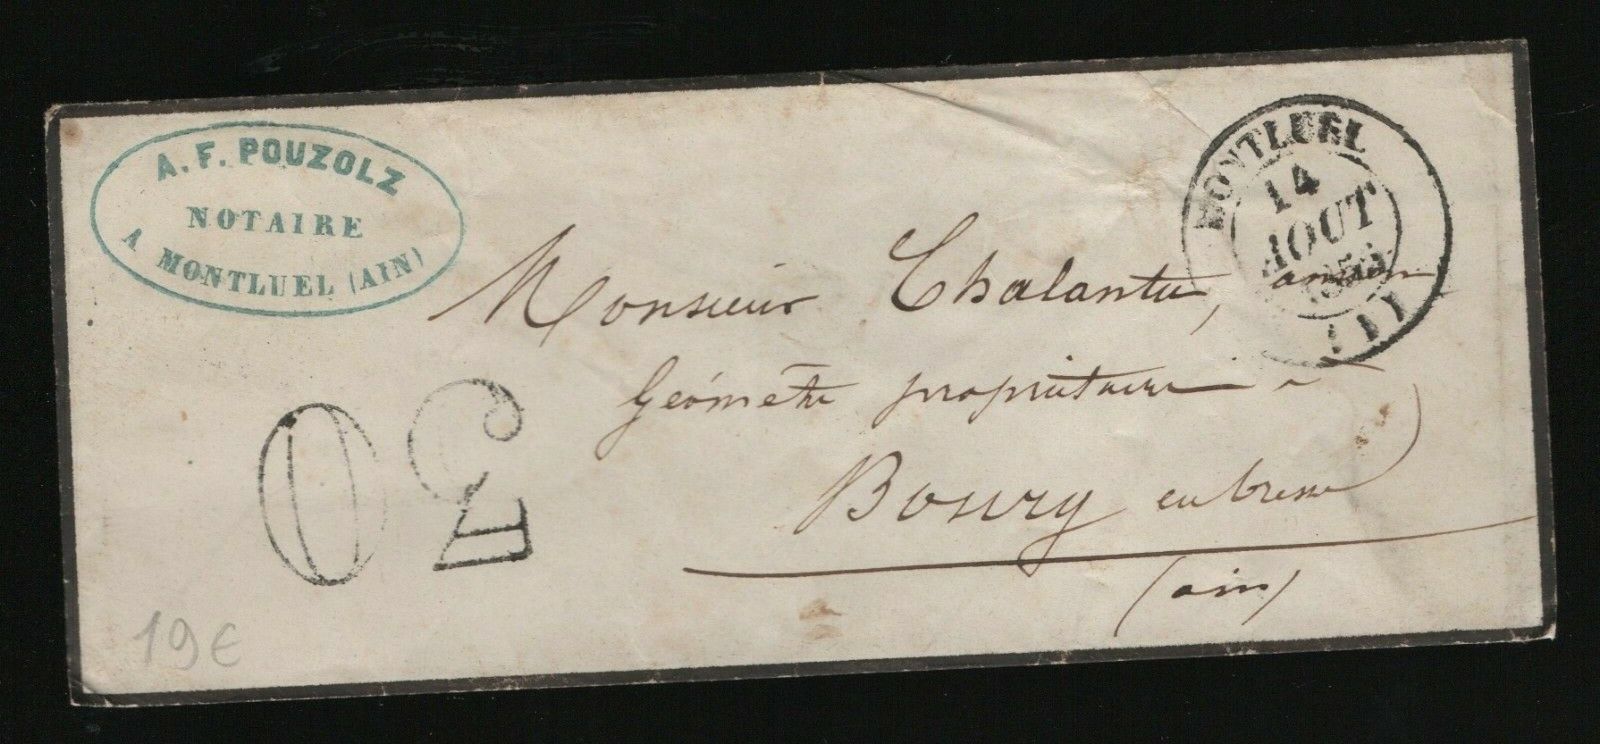 A. F. POUZOLZ
NOTAIRE
A MONTLUEL (AIN)
MONTLUEL
14
AOUT
Monsieur Chalantu, ancien
Géomètre propriétaire à
Bourg en bresse
(ain)
30
19€